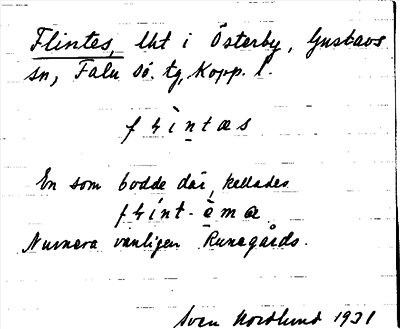 Flintes, lht i Österby, Gustavs
sn, Falu sö. tg, Kopp. l.
fłìntæs
En som bodde där, kallades
fłínt-èmæ
Numera vanligen Runegårds.
Sven Nordlund 1931